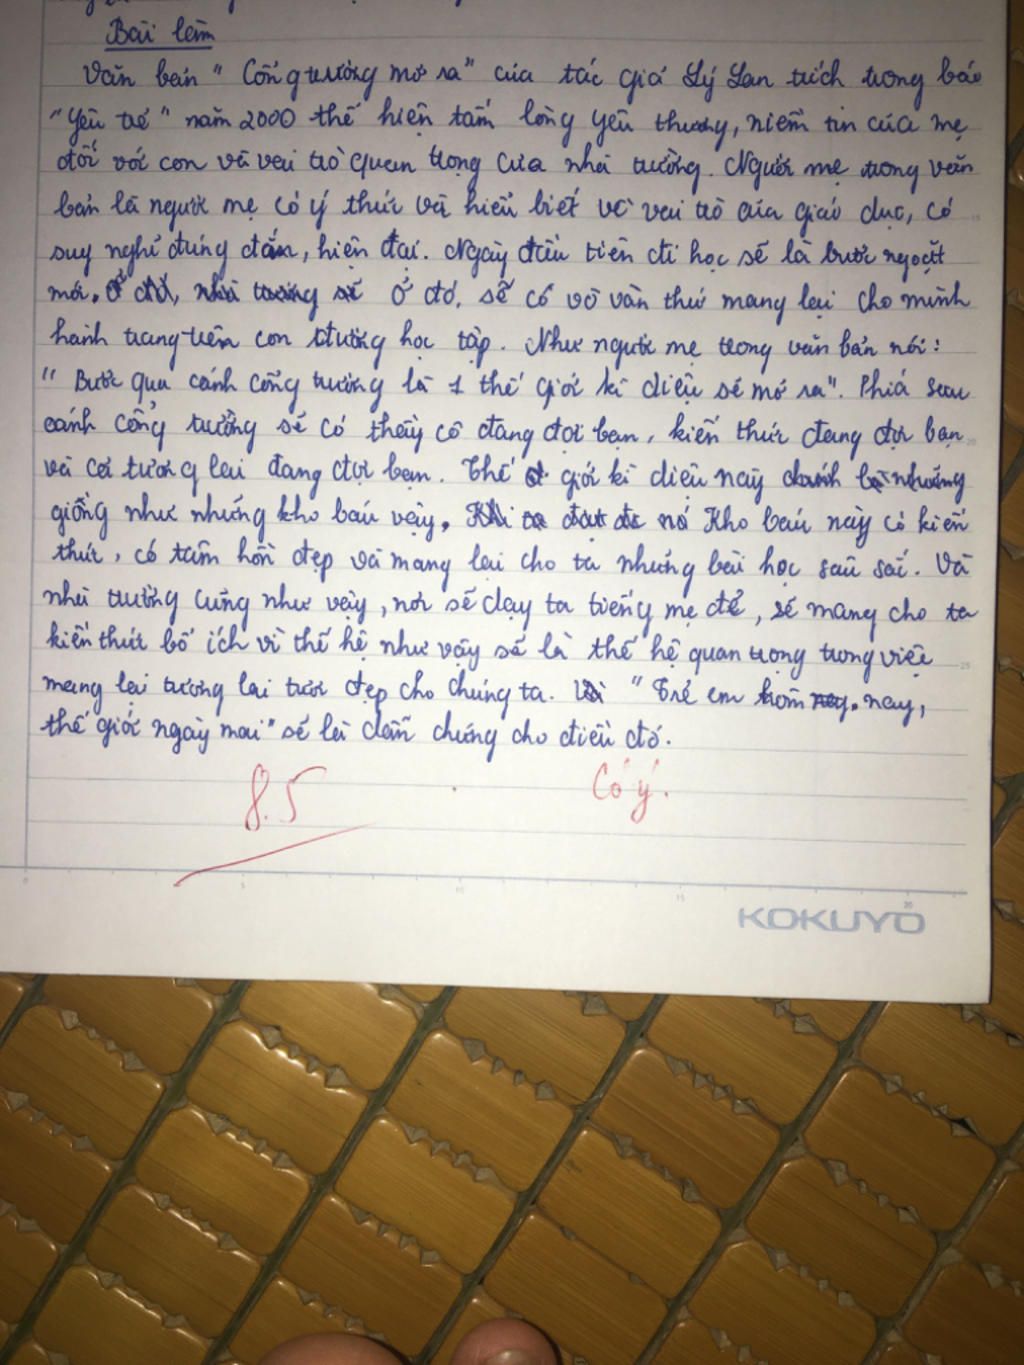 Bài làm
Văn bản " Cổng trường mở ra" của tác giả Lý Lan trích trong báo
"Yêu trẻ" năm 2000 thể hiện tấm lòng yêu thương, niềm tin của mẹ
đối với con và vai trò quan trọng của nhà trường. Người mẹ trong văn
bản là người mẹ có ý thức và hiểu biết về vai trò của giáo dục, có
suy nghĩ đúng đắn, hiện đại. Ngày đầu tiên đi học sẽ là bước ngoặt
mới. Ở đó, sẽ có vô vàn thứ mang lại cho mình
hành trang trên con đường học tập. Như người mẹ trong văn bản nói:
" Bước qua cánh cổng trường là 1 thế giới kì diệu sẽ mở ra". Phía sau
cánh cổng trường sẽ có thầy cô đang đợi bạn, kiến thức đang đợi bạn
và cả tương lai đang đợi bạn. Thế giới kì diệu này
giống như những kho báu vậy. Kho báu này có kiến
thức, có tâm hồn đẹp và mang lại cho ta những bài học sâu sắc. Và
nhà trường cũng như vậy, nơi sẽ dạy ta tiếng mẹ đẻ, sẽ mang cho ta
kiến thức bổ ích vì thế hệ như vậy sẽ là thế hệ quan trọng trong việc
mang lại tương lai tươi đẹp cho chúng ta. "Trẻ em hôm nay,
thế giới ngày mai" sẽ là dẫn chứng cho điều đó.
8.5 Có ý.
KOKUYO